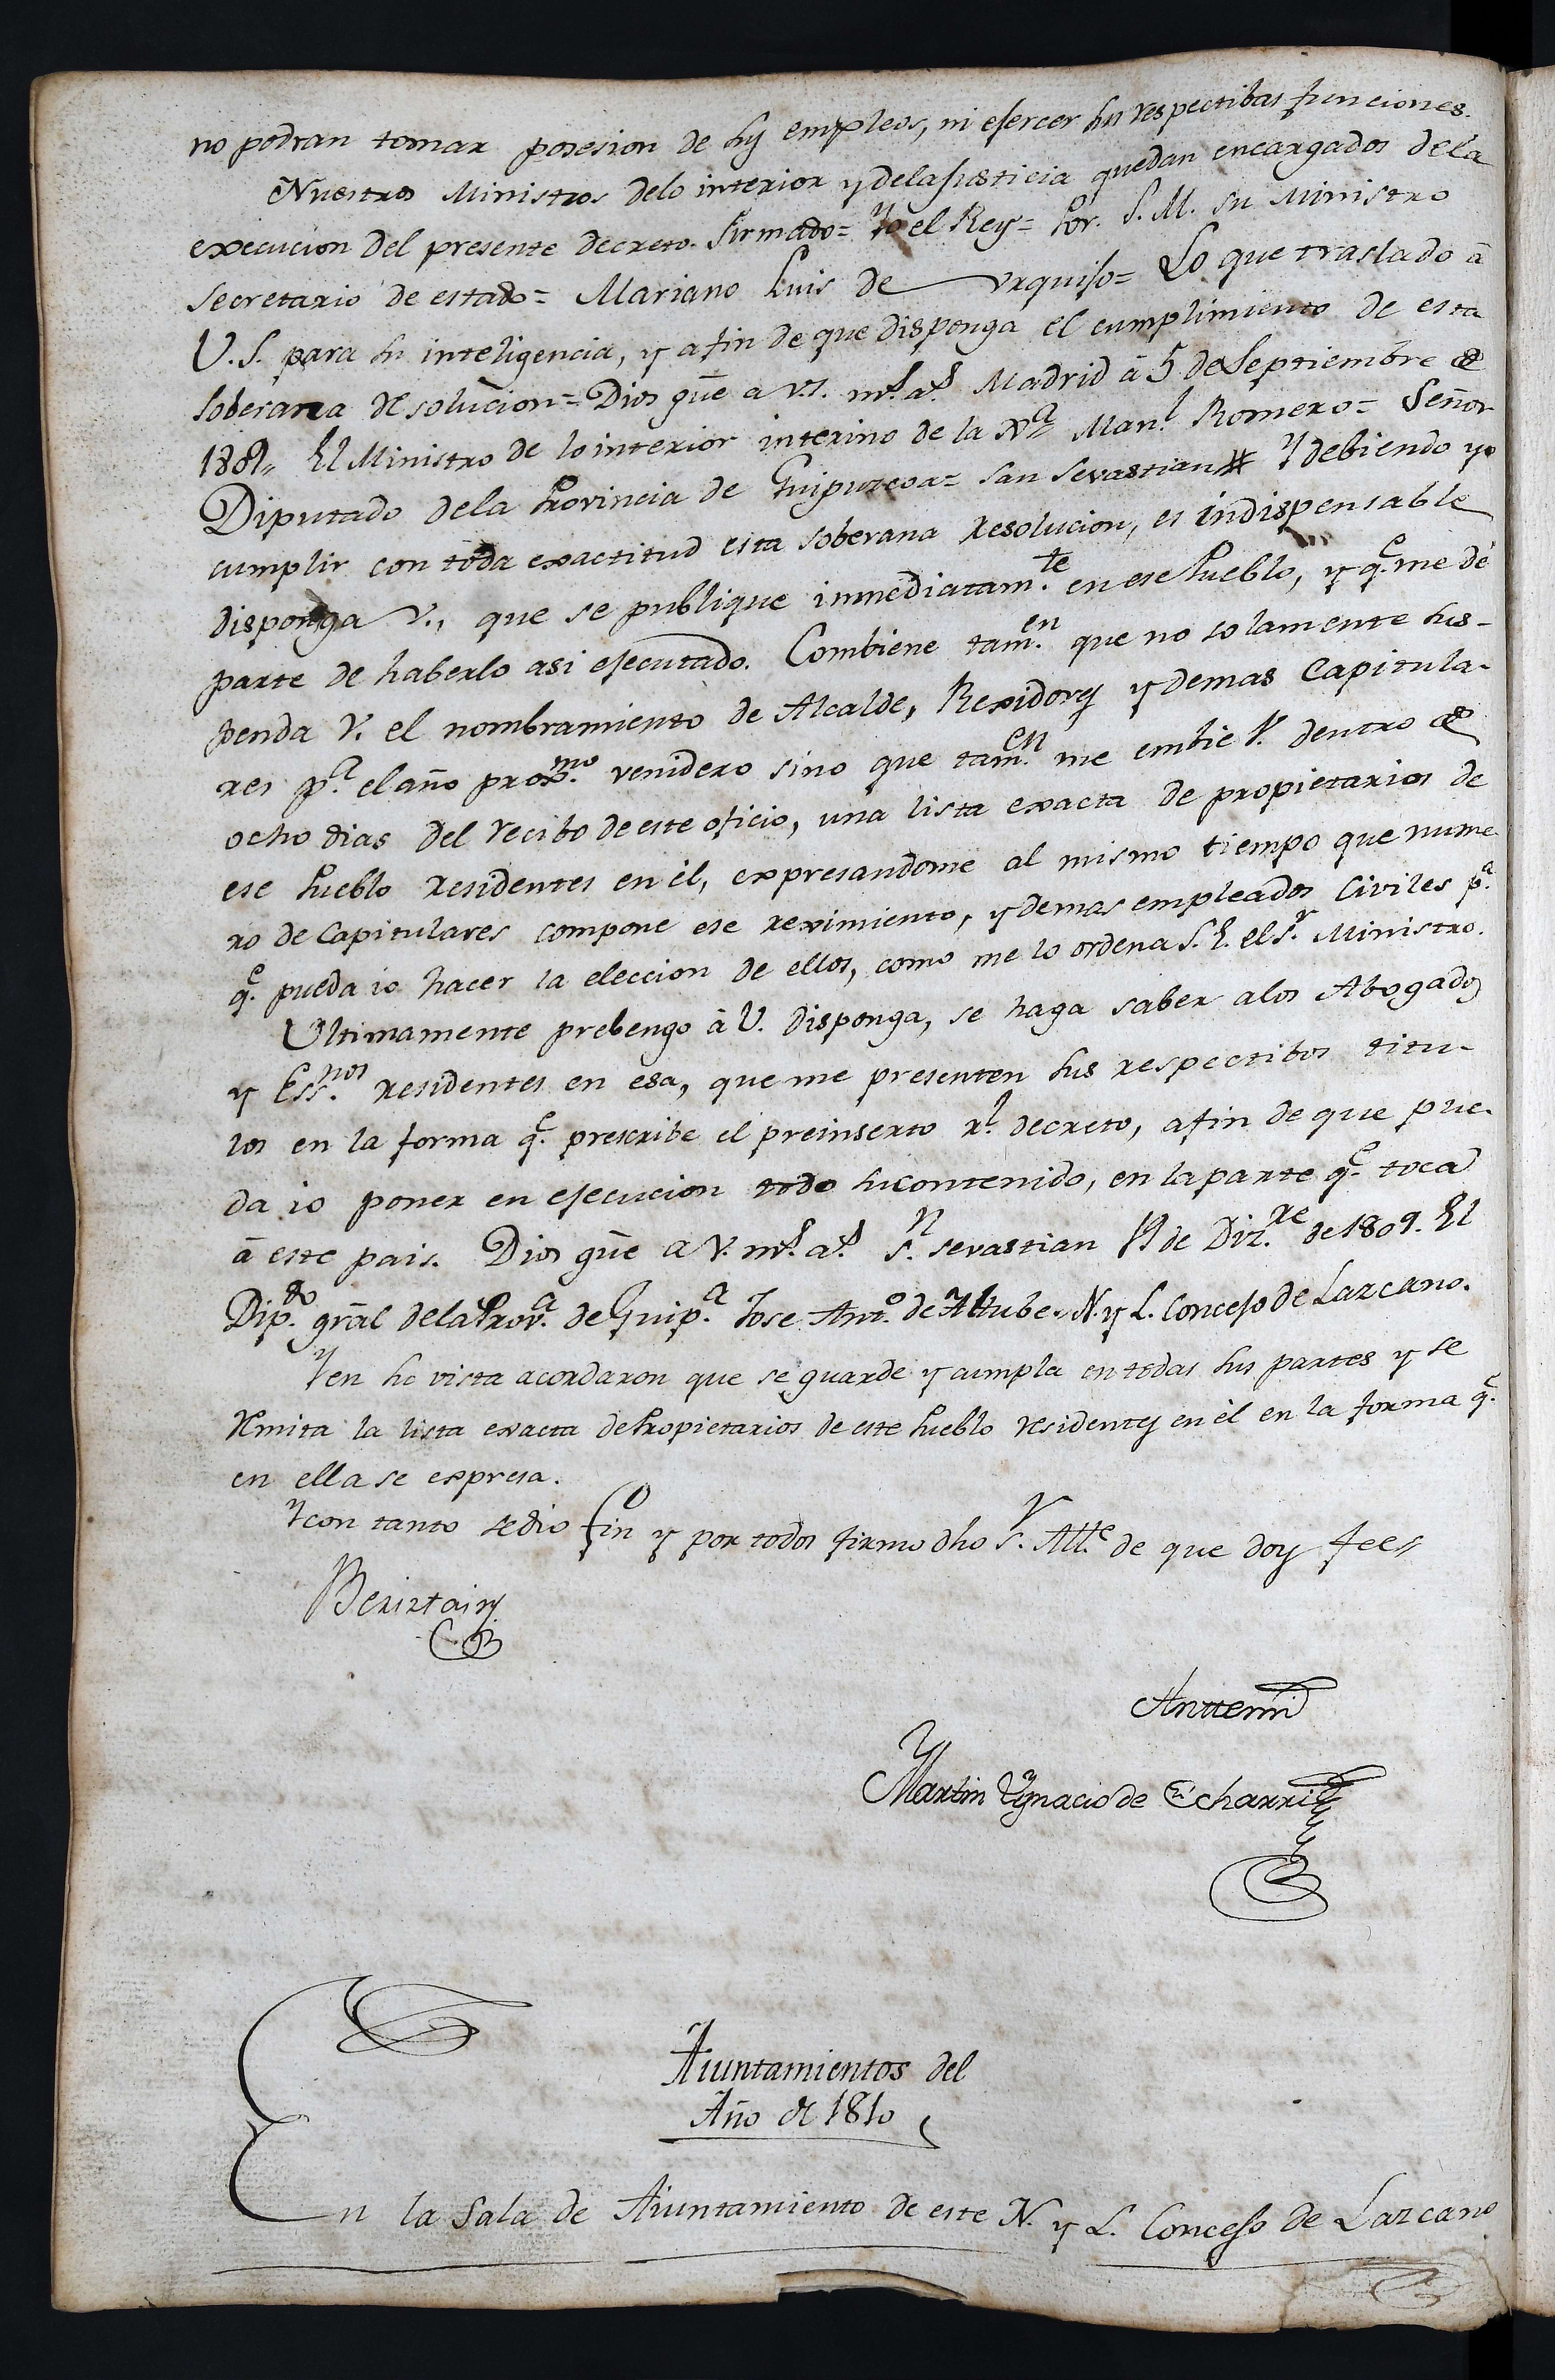 no podran tomar posesion de sus empleos, ni ejercer sus respectibas funciones.
Nuestros Ministros delo interior y dela justicia quedan encargados dela
execucion del presente decreto. firmado = Yo el Rey = Por. S. M. su Ministro
secretario de estado = Mariano Luis de Urquijo = Lo que traslado à
V. S. para su inteligencia, y a fin de que disponga el cumplimiento de esta
soberana resolucion = Dios gūe a v. s. ms. as. Madrid à 5 de Septiembre de
1809,, El Ministro de lo interior interino de la Manl. Romero = Señor
Diputado dela Provincia de Guipuzcoa = san Sevastian Y debiendo yo
cumplir con toda exactitud esta soberana resolucion, es indispensable
disponga V., que se publique inmediatamte. en ese Pueblo, y qe. me dé
parte de haberlo asi ejecutado. Combiene tamen. que no solamente sus-
penda V. el nombramiento de Alcalde, Rexidores y demas Capitula-
res pa. el año proxmo. venidero sino que tamen. me embie V. dentro de
ocho dias del recibo de este oficio, una lista exacta de propietarios de
ese Pueblo residentes en èl, expresandome al mismo tiempo que nume-
ro de Capitulares compone ese reximiento, y demas empleados Civiles pa.
qe. pueda io hacer la eleccion de ellos, como me lo ordena S. E. el sr. Ministro.
Ultimamente prebengo à V. disponga, se haga saber alos Abogados
y Essnos. residentes en esa, que me presenten sus respectibos titu-
los en la forma qe. prescribe el preinserto rl. decreto, afin de que pue-
da io poner en ejecucion todo su contenido, en la parte qe. toca
à este pais. Dios gūe a V. ms. as. sn. sevastian 19 de Dizre. de 1809. El
Dipdo. grāl dela Prova. de Guipa. Jose Anto. de Altube. N. y L. Concejo de Lazcano.
Y en su vista acordaron que se guarde y cumpla en todas sus partes y se
remita la lista exacta de Propietarios de este Pueblo residentes en èl en la forma qe.
en ella se expresa.
Y con tanto se dio fin y por todos firmo dho sr. Alle. de que doy fee,,
Beriztain
Anttemi
Martin Ygnacio de Echarri
Aiuntamientos del
Año de 1810
En la Sala de Aiuntamiento de este N. y L. Concejo de Lazcano